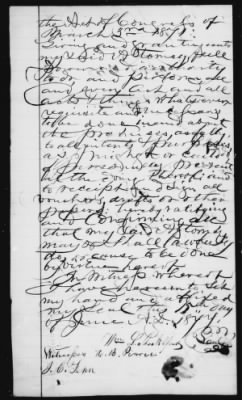 the Act of Congress of
March 3rd 1871
Giving and granting unto
my said Attorney full
Power and authority
to do and perform all
and every act and all
acts & things whatsoever
requisite and necessary
to be done in and about
the premises as fully
to all intents & purposes
as I might or could
do if personally present
at the doing thereof and
to receipt & sign all
vouchers, drafts or other
papers hereby ratifying
& confirming all
that my said Attorney
may or shall lawfully
do or cause to be done
by virtue hereof
In Witness Whereof
I have hereunto set
my hand and affixed
my seal this day
of June A.D. 1871
Wm
Witnesses